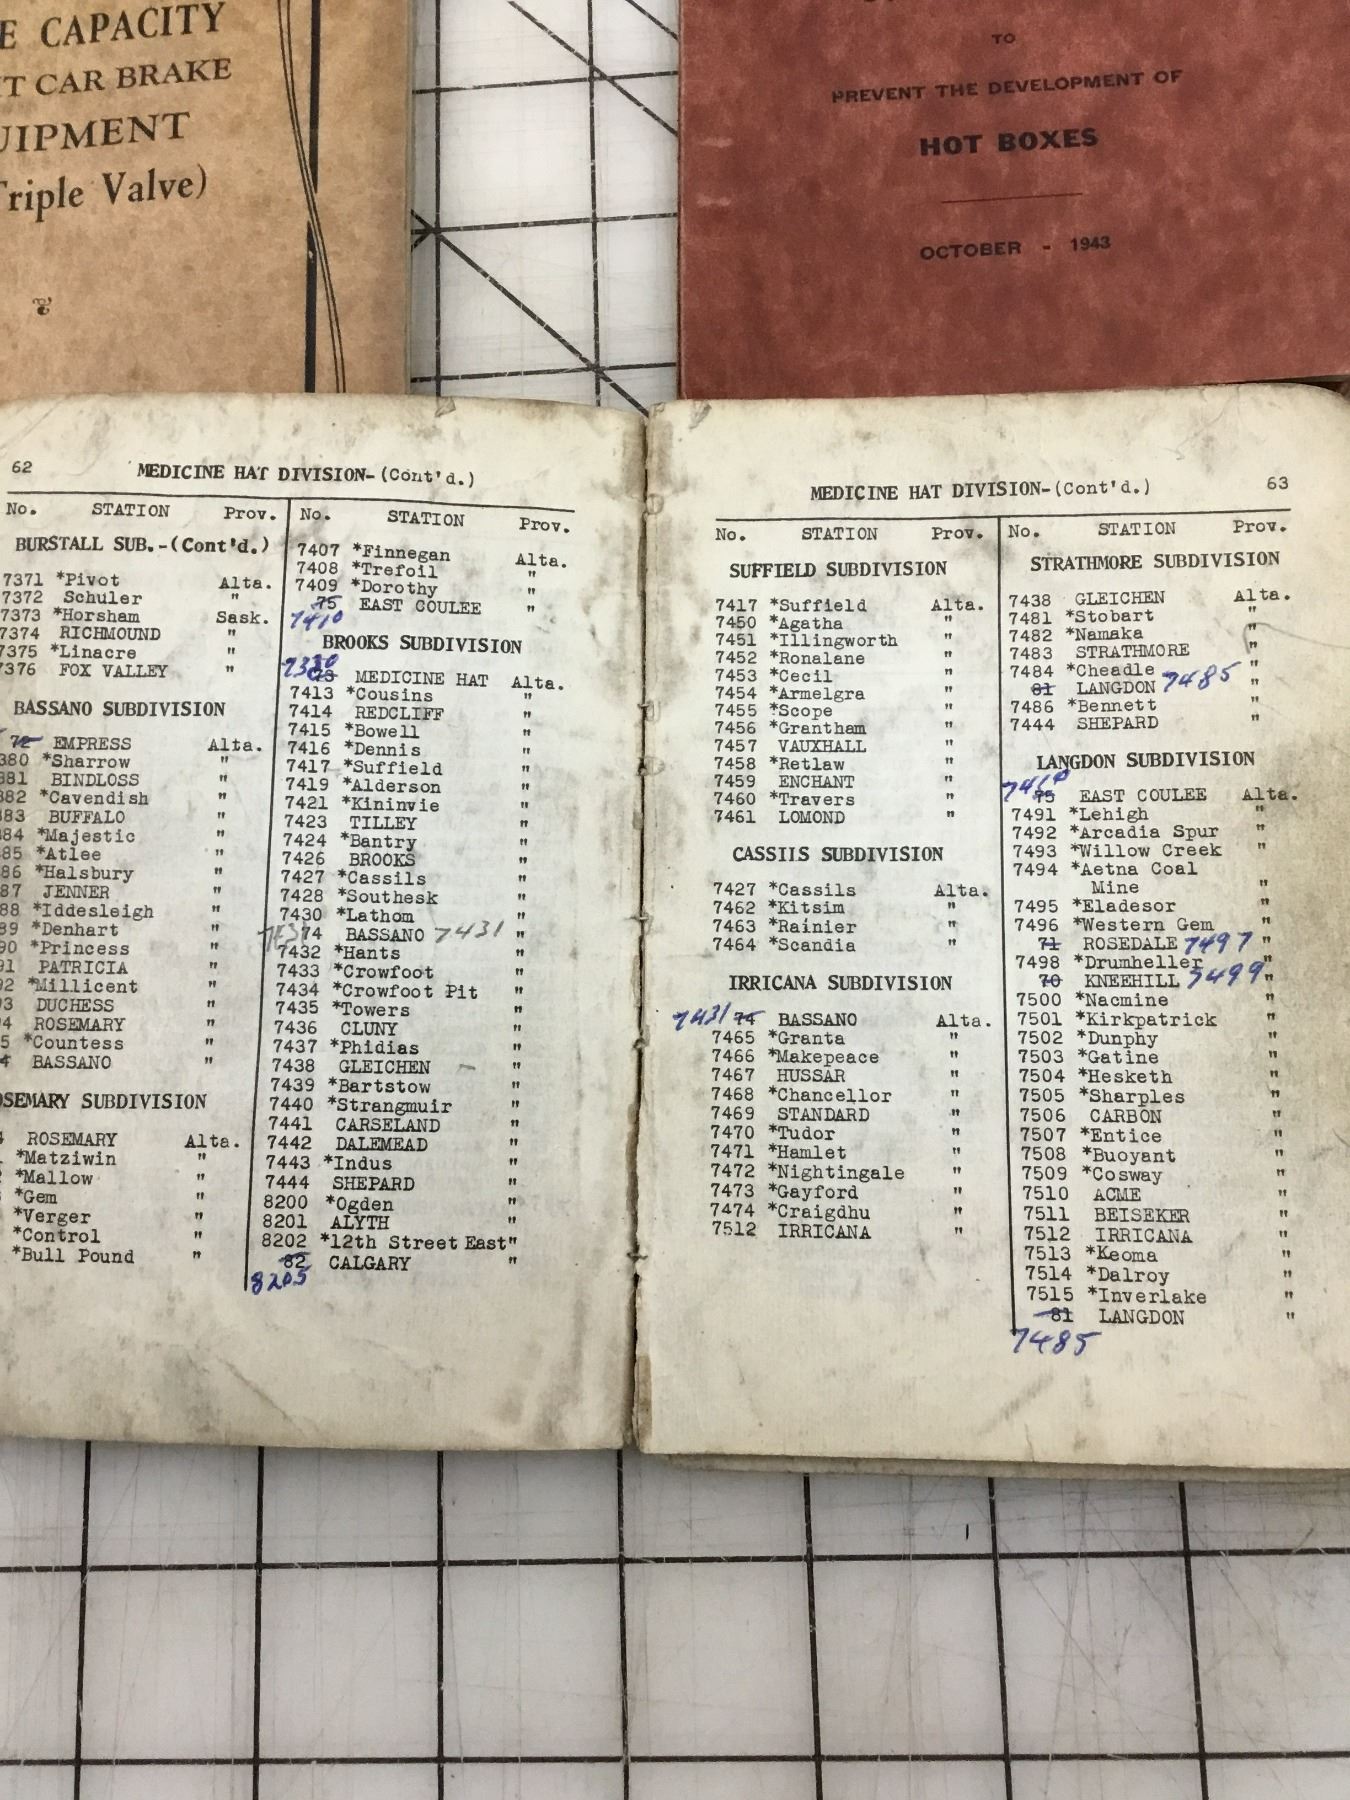 E CAPACITY
T CAR BRAKE
UIPMENT
Triple Valve)
TO
PREVENT THE DEVELOPMENT OF
HOT BOXES
OCTOBER - 1943
62
MEDICINE HAT DIVISION-(Cont'd.)
No. STATION Prov.
BURSTALL SUB.-(Cont'd.)
7371 *Pivot Alta.
7372 Schuler "
7373 *Horsham Sask.
7374 RICHMOUND "
7375 *Linacre "
7376 FOX VALLEY "
BASSANO SUBDIVISION
72 EMPRESS Alta.
380 *Sharrow "
381 BINDLOSS "
382 *Cavendish "
383 BUFFALO "
84 *Majestic "
85 *Atlee "
86 *Halsbury "
87 JENNER "
88 *Iddesleigh "
89 *Denhart "
90 *Princess "
91 PATRICIA "
92 *Millicent "
93 DUCHESS "
4 ROSEMARY "
5 *Countess "
4 BASSANO "
OSEMARY SUBDIVISION
4 ROSEMARY Alta.
*Matziwin "
*Mallow "
*Gem "
*Verger "
*Control "
*Bull Pound "
No. STATION Prov.
7407 *Finnegan Alta.
7408 *Trefoil "
7409 *Dorothy "
75 EAST COULEE "
7410
BROOKS SUBDIVISION
73 MEDICINE HAT Alta.
7413 *Cousins "
7414 REDCLIFF "
7415 *Bowell "
7416 *Dennis "
7417 *Suffield "
7419 *Alderson "
7421 *Kininvie "
7423 TILLEY "
7424 *Bantry "
7426 BROOKS "
7427 *Cassils "
7428 *Southesk "
7430 *Lathom "
74 BASSANO 7431 "
7432 *Hants "
7433 *Crowfoot "
7434 *Crowfoot Pit "
7435 *Towers "
7436 CLUNY "
7437 *Phidias "
7438 GLEICHEN "
7439 *Bartstow "
7440 *Strangmuir "
7441 CARSELAND "
7442 DALEMEAD "
7443 *Indus "
7444 SHEPARD "
8200 *Ogden "
8201 ALYTH "
8202 *12th Street East"
82 CALGARY "
8205
MEDICINE HAT DIVISION-(Cont'd.)
63
No. STATION Prov.
SUFFIELD SUBDIVISION
7417 *Suffield Alta.
7450 *Agatha "
7451 *Illingworth "
7452 *Ronalane "
7453 *Cecil "
7454 *Armelgra "
7455 *Scope "
7456 *Grantham "
7457 VAUXHALL "
7458 *Retlaw "
7459 ENCHANT "
7460 *Travers "
7461 LOMOND "
CASSIIS SUBDIVISION
7427 *Cassils Alta.
7462 *Kitsim "
7463 *Rainier "
7464 *Scandia "
IRRICANA SUBDIVISION
7431 74 BASSANO Alta.
7465 *Granta "
7466 *Makepeace "
7467 HUSSAR "
7468 *Chancellor "
7469 STANDARD "
7470 *Tudor "
7471 *Hamlet "
7472 *Nightingale "
7473 *Gayford "
7474 *Craigdhu "
7512 IRRICANA "
No. STATION Prov.
STRATHMORE SUBDIVISION
7438 GLEICHEN Alta.
7481 *Stobart "
7482 *Namaka "
7483 STRATHMORE "
7484 *Cheadle "
81 LANGDON 7485 "
7486 *Bennett "
7444 SHEPARD "
LANGDON SUBDIVISION
7410
75 EAST COULEE Alta.
7491 *Lehigh "
7492 *Arcadia Spur "
7493 *Willow Creek "
7494 *Aetna Coal
Mine "
7495 *Eladesor "
7496 *Western Gem "
71 ROSEDALE 7497 "
7498 *Drumheller "
70 KNEEHILL "
7500 *Nacmine "
7501 *Kirkpatrick "
7502 *Dunphy "
7503 *Gatine "
7504 *Hesketh "
7505 *Sharples "
7506 CARBON "
7507 *Entice "
7508 *Buoyant "
7509 *Cosway "
7510 ACME "
7511 BEISEKER "
7512 IRRICANA "
7513 *Keoma "
7514 *Dalroy "
7515 *Inverlake "
81 LANGDON "
7485